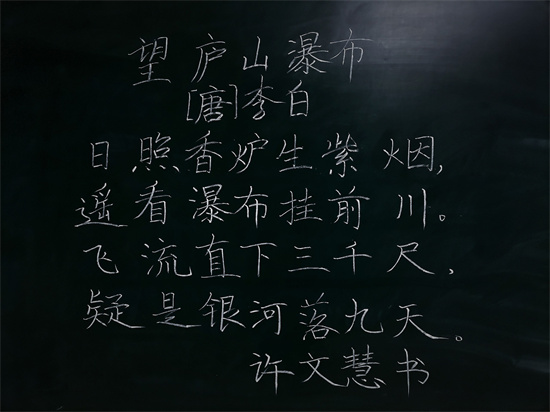 望庐山瀑布
[唐]李白
日照香炉生紫烟,
遥看瀑布挂前川。
飞流直下三千尺,
疑是银河落九天。
许文慧书